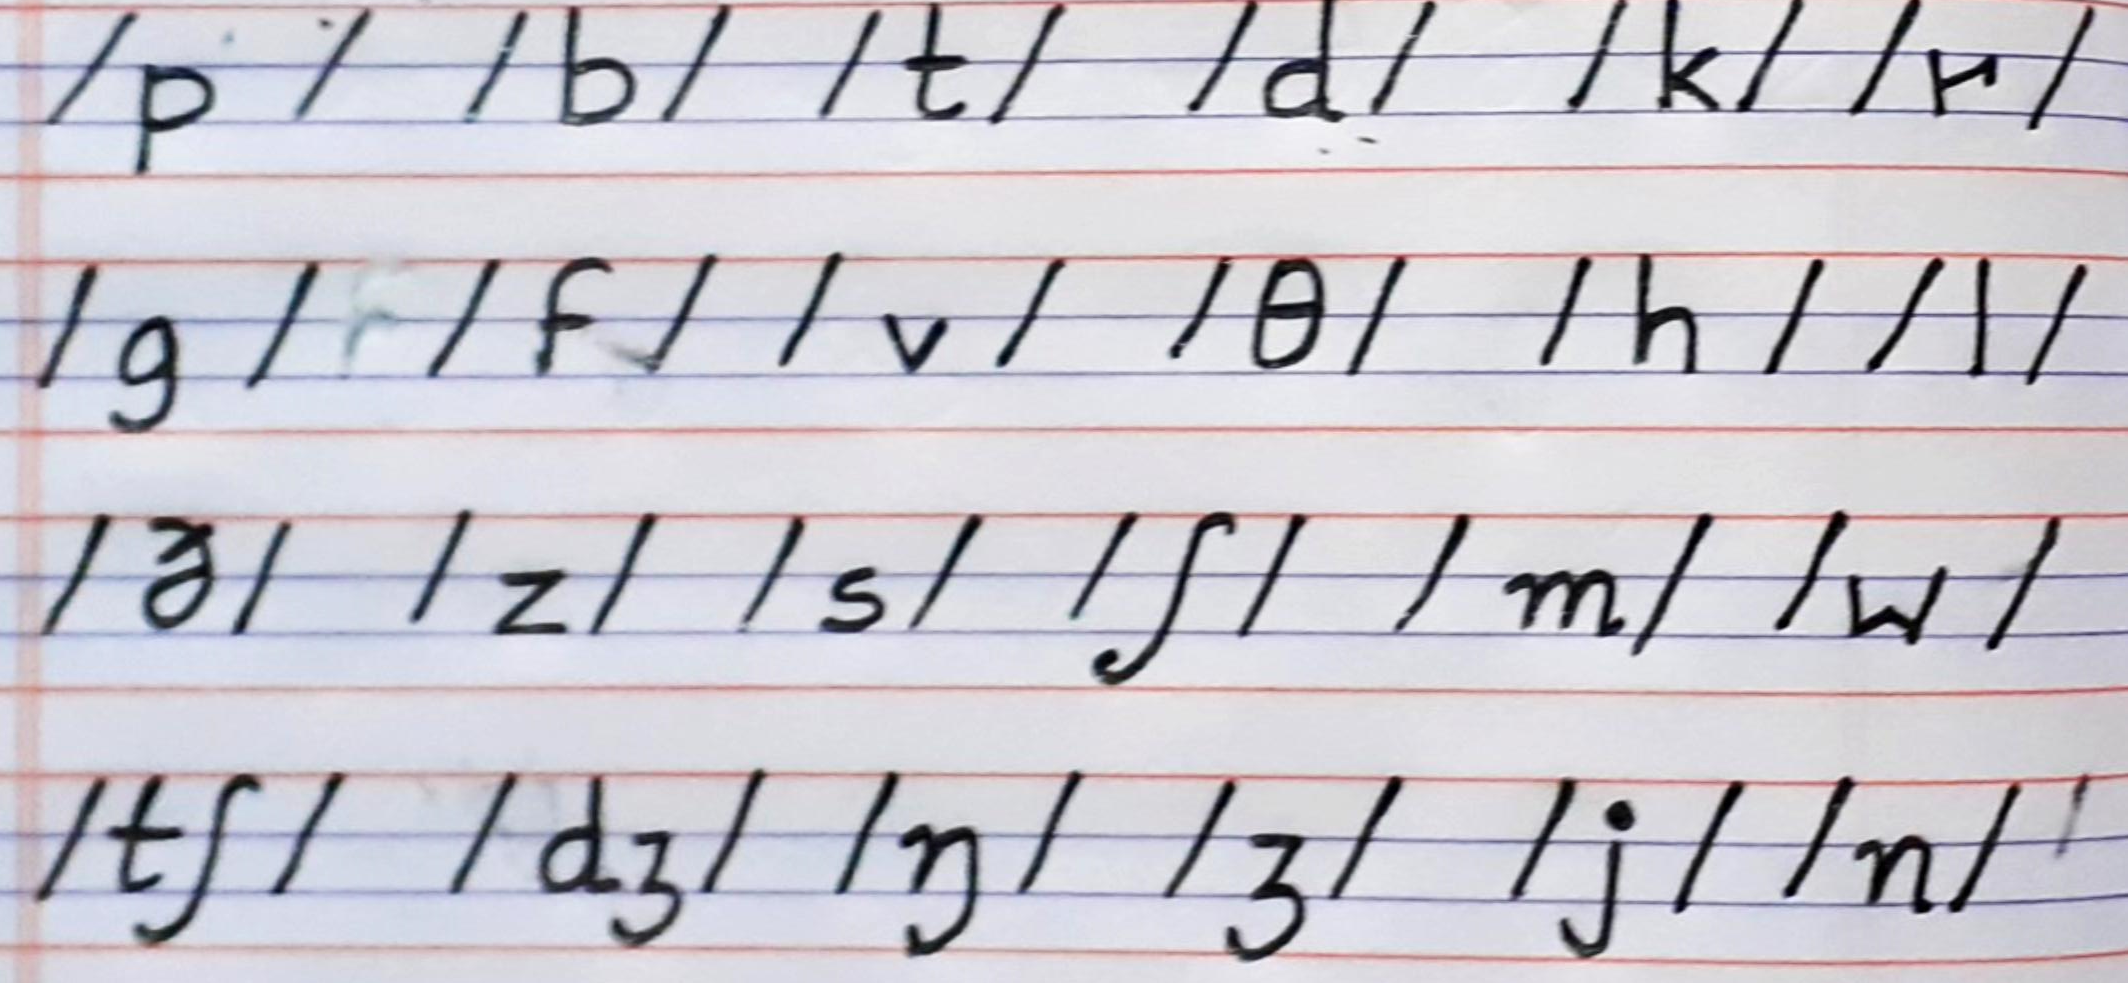 /p/ /b/ /t/ /d/ /k/ /r/
/g/ /f/ /v/ /θ/ /h/ /l/
/ð/ /z/ /s/ /ʃ/ /m/ /w/
/tʃ/ /dʒ/ /ŋ/ /ʒ/ /j/ /n/